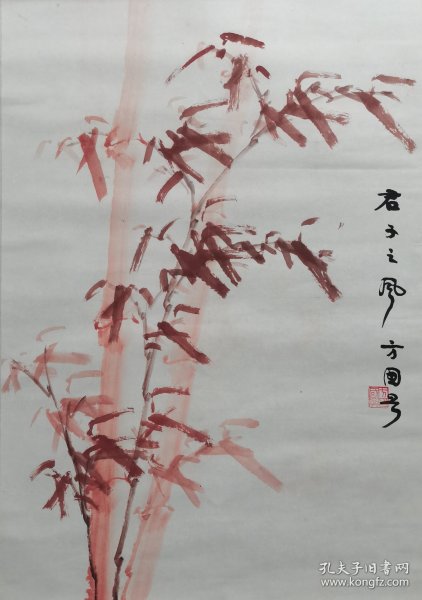 君子之风 方圆写
孔夫子旧书网
www.kongfz.com